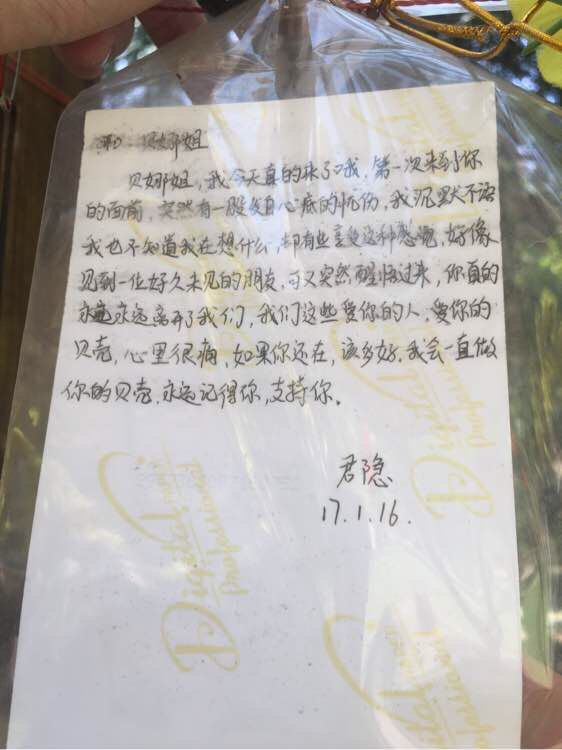 和 贝娜姐
贝娜姐，我今天真的来了哦，第一次来到你
的面前，突然有一股发自心底的忧伤，我沉默不语
我也不知道我在想什么，却有些享受这种感觉，好像
见到一位好久未见的朋友，可又突然醒悟过来，你真的
永远永远离开了我们，我们这些爱你的人，爱你的
贝壳，心里很痛，如果你还在，该多好，我会一直做
你的贝壳，永远记得你，支持你。
君隐
17.1.16.
Digital
Professional
Digital
Professional
Digital
Professional